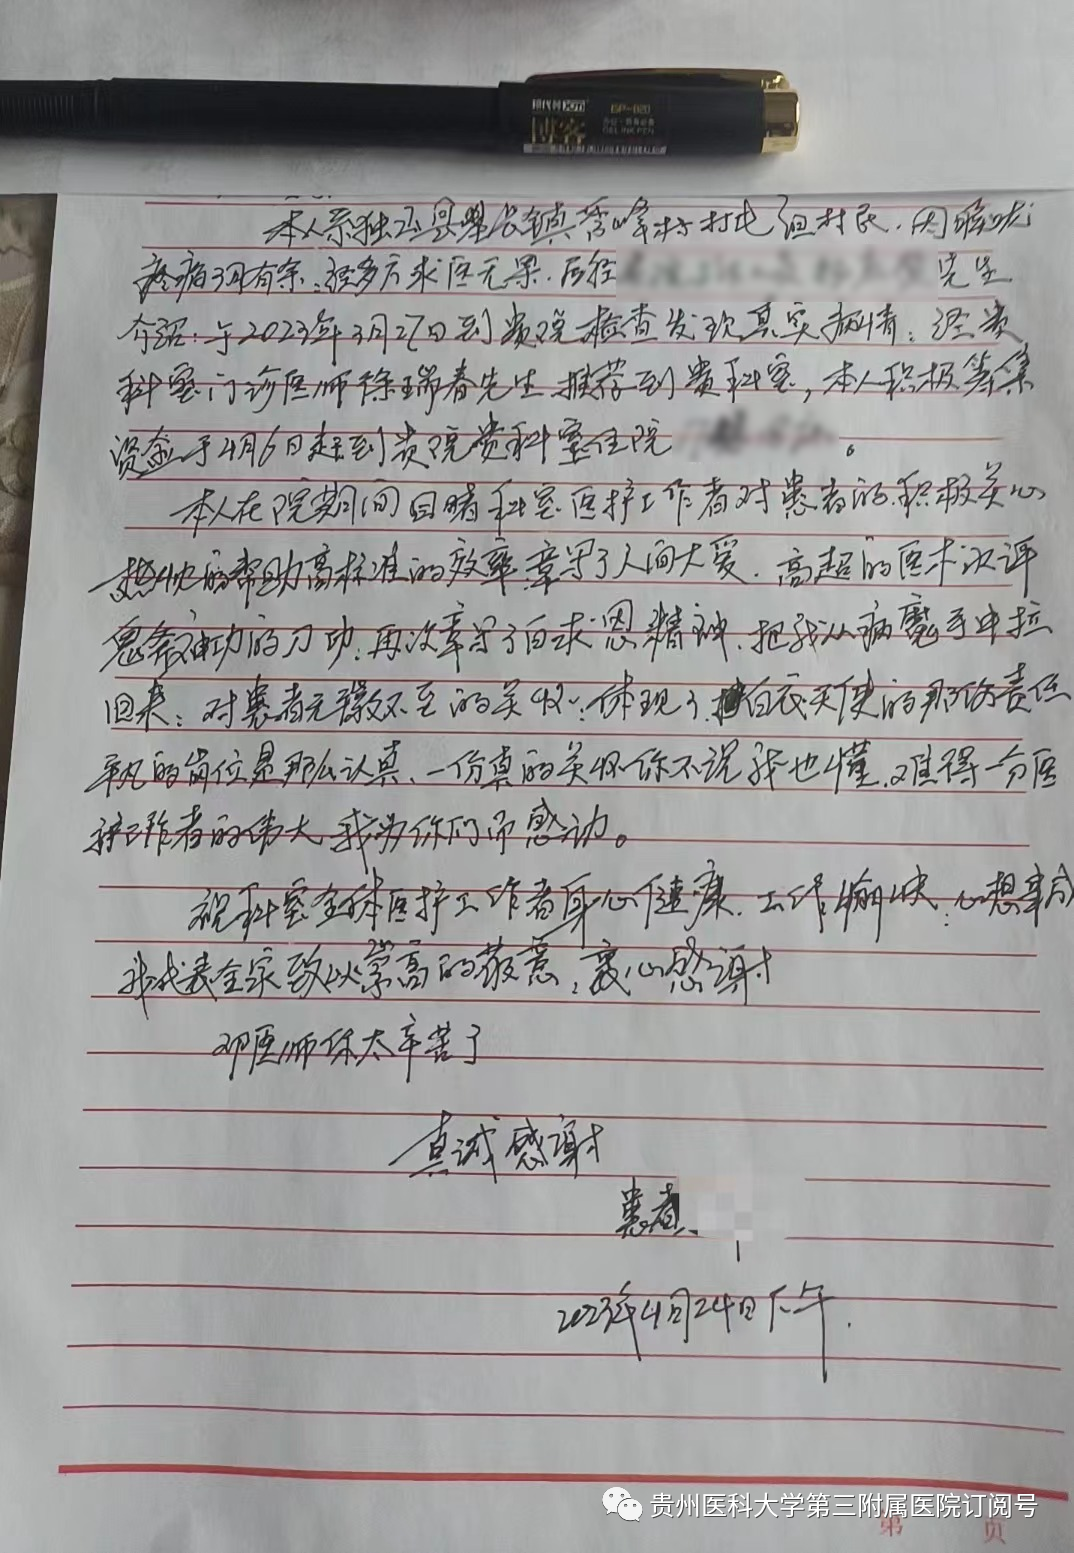 现代美 文仃
博客
GP-820
办公·商务必备
GEL INK PEN
本人系独山县 镇 峰村村 组村民,因
疼痛3月有余:经多方求医无果.后经 先生
介绍:于2023年3月27日到贵院检查发现真实病情:经贵
科室门诊医师徐瑞春先生推荐到贵科室,本人积极筹集
资金于4月6日赶到贵院贵科室住院 。
本人在院期间目睹科室医护工作者对患者的积极关心
热忱的帮助高标准的效率 了人间大爱.高超的医术
鬼斧神功的刀功.再次 了白求恩精神.把我从病魔手中拉
回来:对患者无微不至的关怀:体现了 白衣天使的那份责任
平凡的岗位是那么认真.一份真的关怀你不说我也懂.难得一份医
护工作者的伟大 我为你们而感动。
祝科室全体医护工作者身心健康.工作愉快:心想事成
我代表全家致以崇高的敬意:衷心感谢
邓医师你太辛苦了
真诚感谢
患者
2023年4月24日下午.
贵州医科大学第三附属医院订阅号
第 页